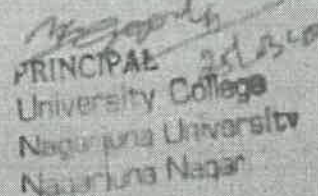 PRINCIPAL
University College
Nagarjuna University
Nagarjuna Nagar